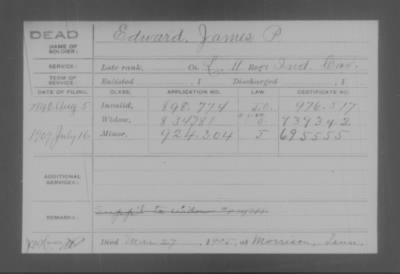 DEAD
NAME OF SOLDIER: Edward, James P
SERVICE: Late rank, Co. L, 11 Reg't Ind. Cav.
TERM OF SERVICE: Enlisted , 1 Discharged , 1
DATE OF FILING. CLASS. APPLICATION NO. LAW. CERTIFICATE NO.
1890 Aug 5 Invalid, 898.774 476.517
Widow, 834781
1907 July 16 Minor, 924.204 695555
ADDITIONAL SERVICES:
REMARKS:
Died Mar 27, 1905, at Morrison, Tenn.